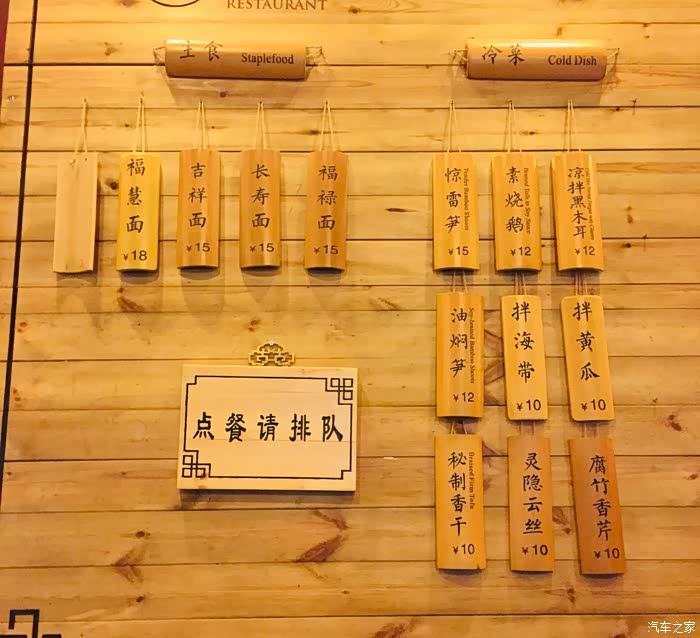 RESTAURANT
主食 Staplefood
冷菜 Cold Dish
福慧面
¥18
吉祥面
¥15
长寿面
¥15
福禄面
¥15
惊雷笋
Tender Bamboo Shoots
¥15
素烧鹅
¥12
凉拌黑木耳
¥12
油焖笋
Soy-braised Bamboo Shoots
¥12
拌海带
¥10
拌黄瓜
¥10
点餐请排队
秘制香干
Braised Firm Tofu
¥10
灵隐云丝
¥10
腐竹香芹
¥10
汽车之家